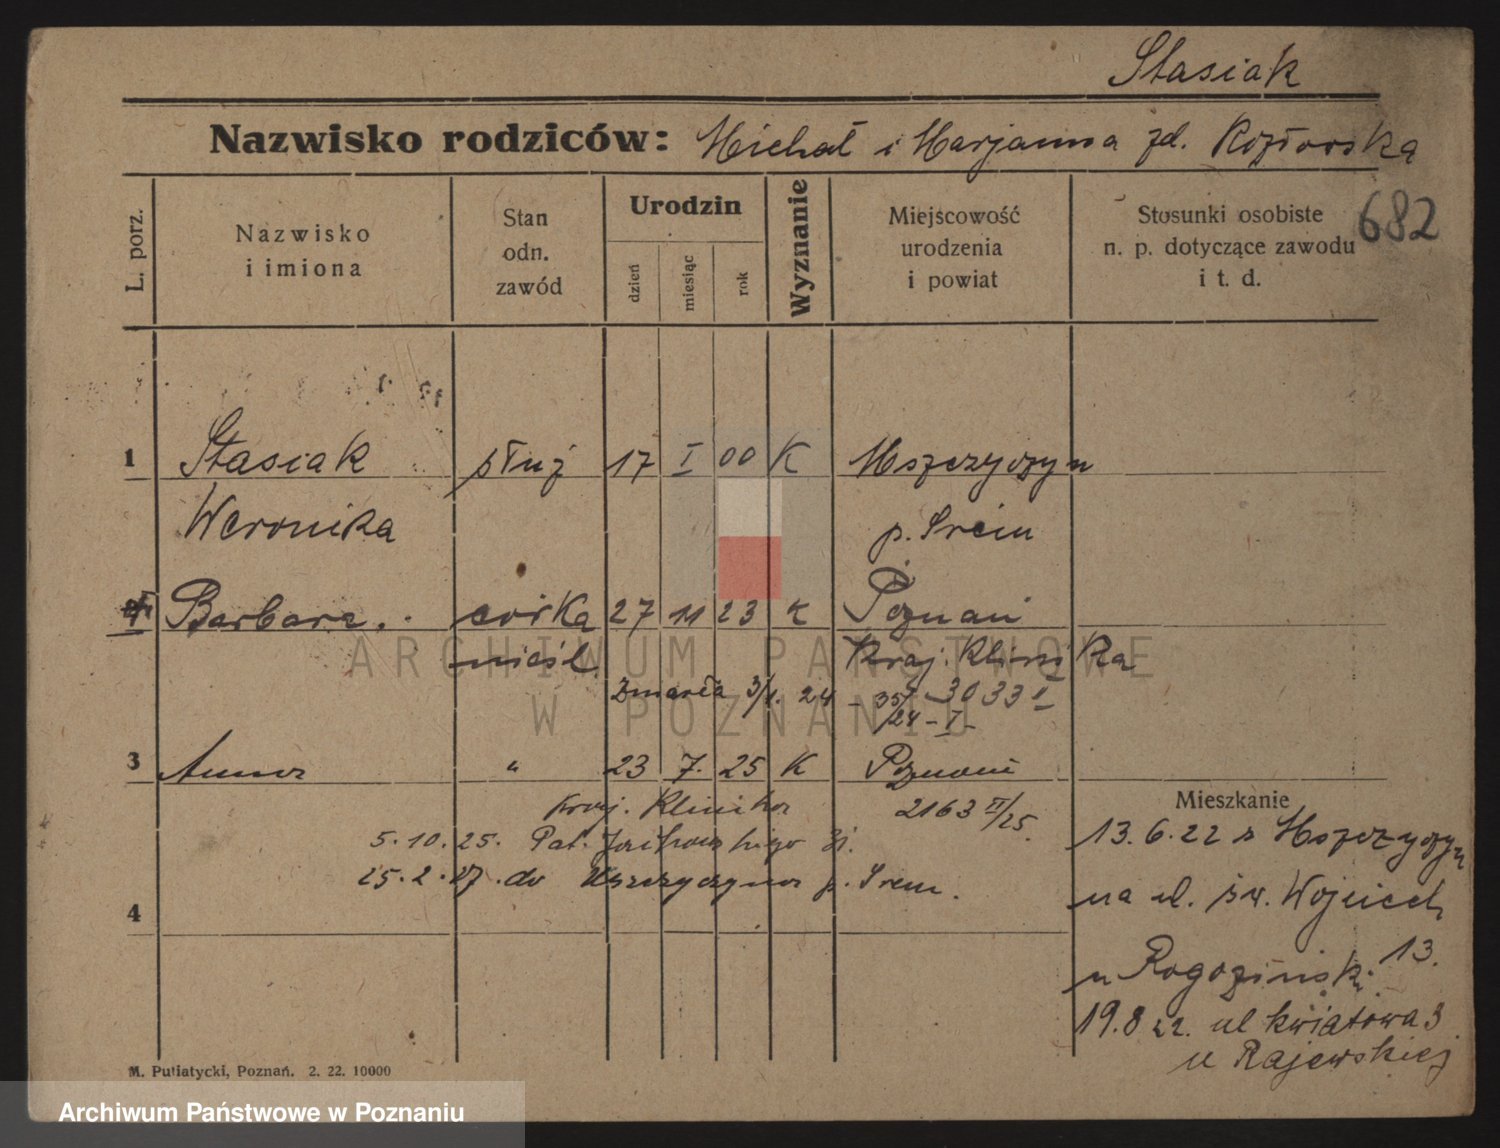 Stasiak
Nazwisko rodziców: Michał i Marjanna zd. Kozłowska
682
L. porz.
Nazwisko
i imiona
Stan
odn.
zawód
Urodzin
dzień
miesiąc
rok
Wyznanie
Miejscowość
urodzenia
i powiat
Stosunki osobiste
n. p. dotyczące zawodu
i t. d.
1 Stasiak służ 17 I 00 K Mszczyczyn
Weronika p. Śrem
Barbara córka 27 11 23 K Poznań
nieśl. Kraj. Klinika
Zmarła 3/1. 24 - 35/24 - I - 3033 I
3 Anna " 23 7. 25 K Poznań
Kraj. Klinika 2163 II/25.
5.10.25. Pat. 31.
25.2.27. do Mszczyczyna p. Śrem.
4
Mieszkanie
13.6.22 z Mszczyczyn
na ul. św. Wojciech
13.
u Rogoziński
19.8 22. ul kwiatowa 3
u Rajewskiej
M. Putiatycki, Poznań. 2. 22. 10000
ARCHIWUM PAŃSTWOWE
W POZNANIU
Archiwum Państwowe w Poznaniu